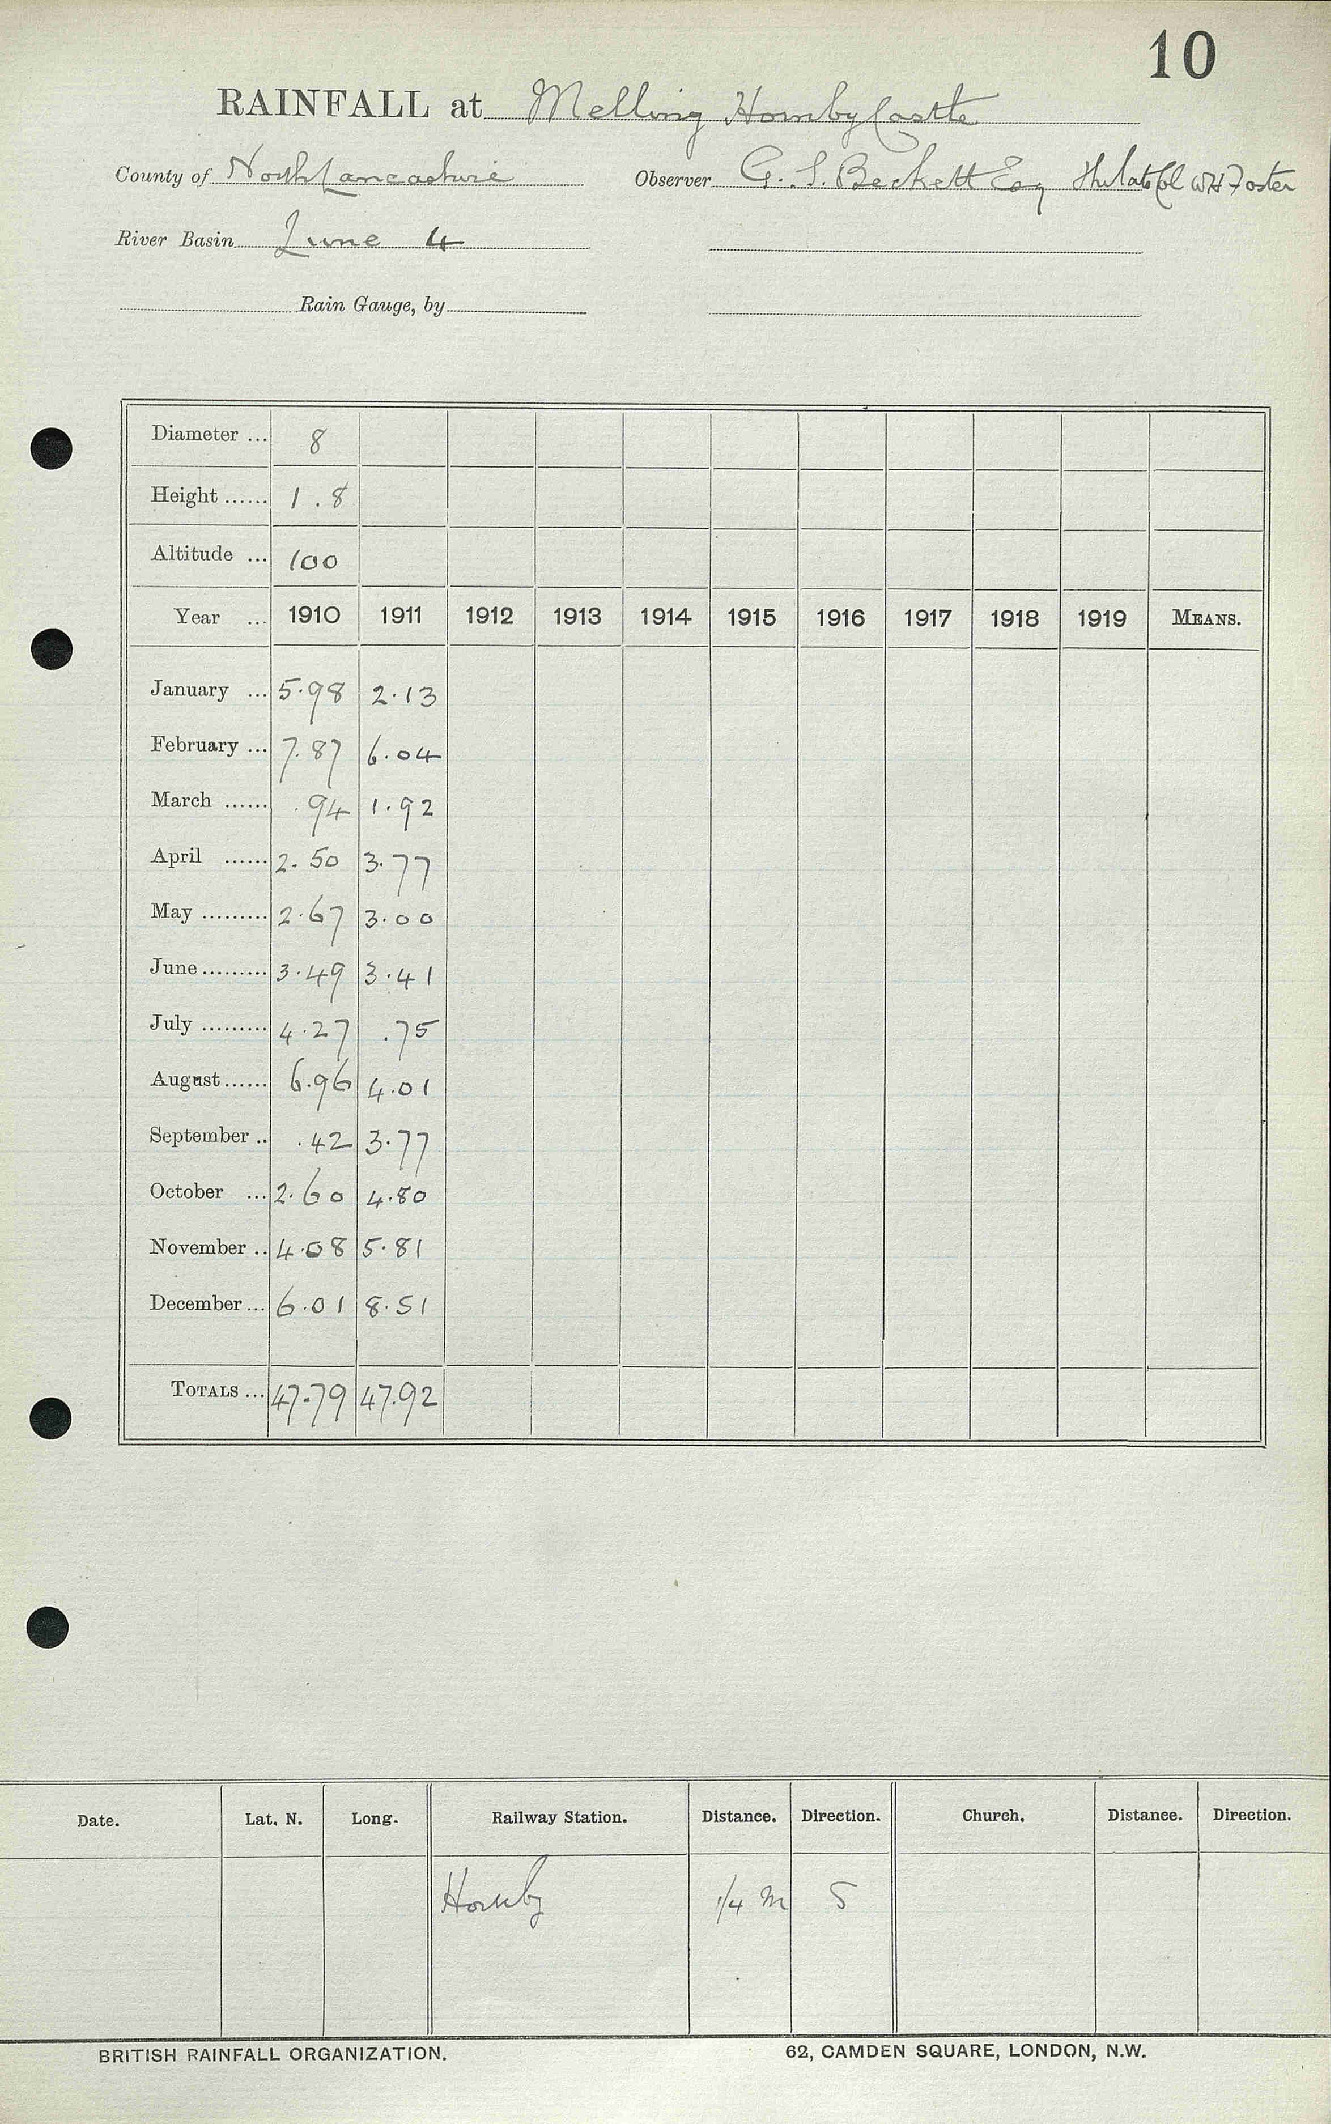 10
RAINFALL at Melling Hornby Castle
County of North Lancashire Observer G. S. Beckett Esq The late Col W H Foster
River Basin Lune 4
Rain Gauge, by
Diameter ... 8
Height ...... 1.8
Altitude ... 100
Year ... 1910 1911 1912 1913 1914 1915 1916 1917 1918 1919 MEANS.
January ... 5.98 2.13
February ... 7.87 6.04
March ...... .94 1.92
April ...... 2.50 3.77
May ......... 2.67 3.00
June ......... 3.49 3.41
July ......... 4.27 .75
August ...... 6.96 4.01
September .. .42 3.77
October ... 2.60 4.80
November .. 4.08 5.81
December ... 6.01 8.51
TOTALS ... 47.79 47.92
Date. Lat. N. Long. Railway Station. Distance. Direction. Church. Distance. Direction.
Hornby 1/4 m S
BRITISH RAINFALL ORGANIZATION. 62, CAMDEN SQUARE, LONDON, N.W.